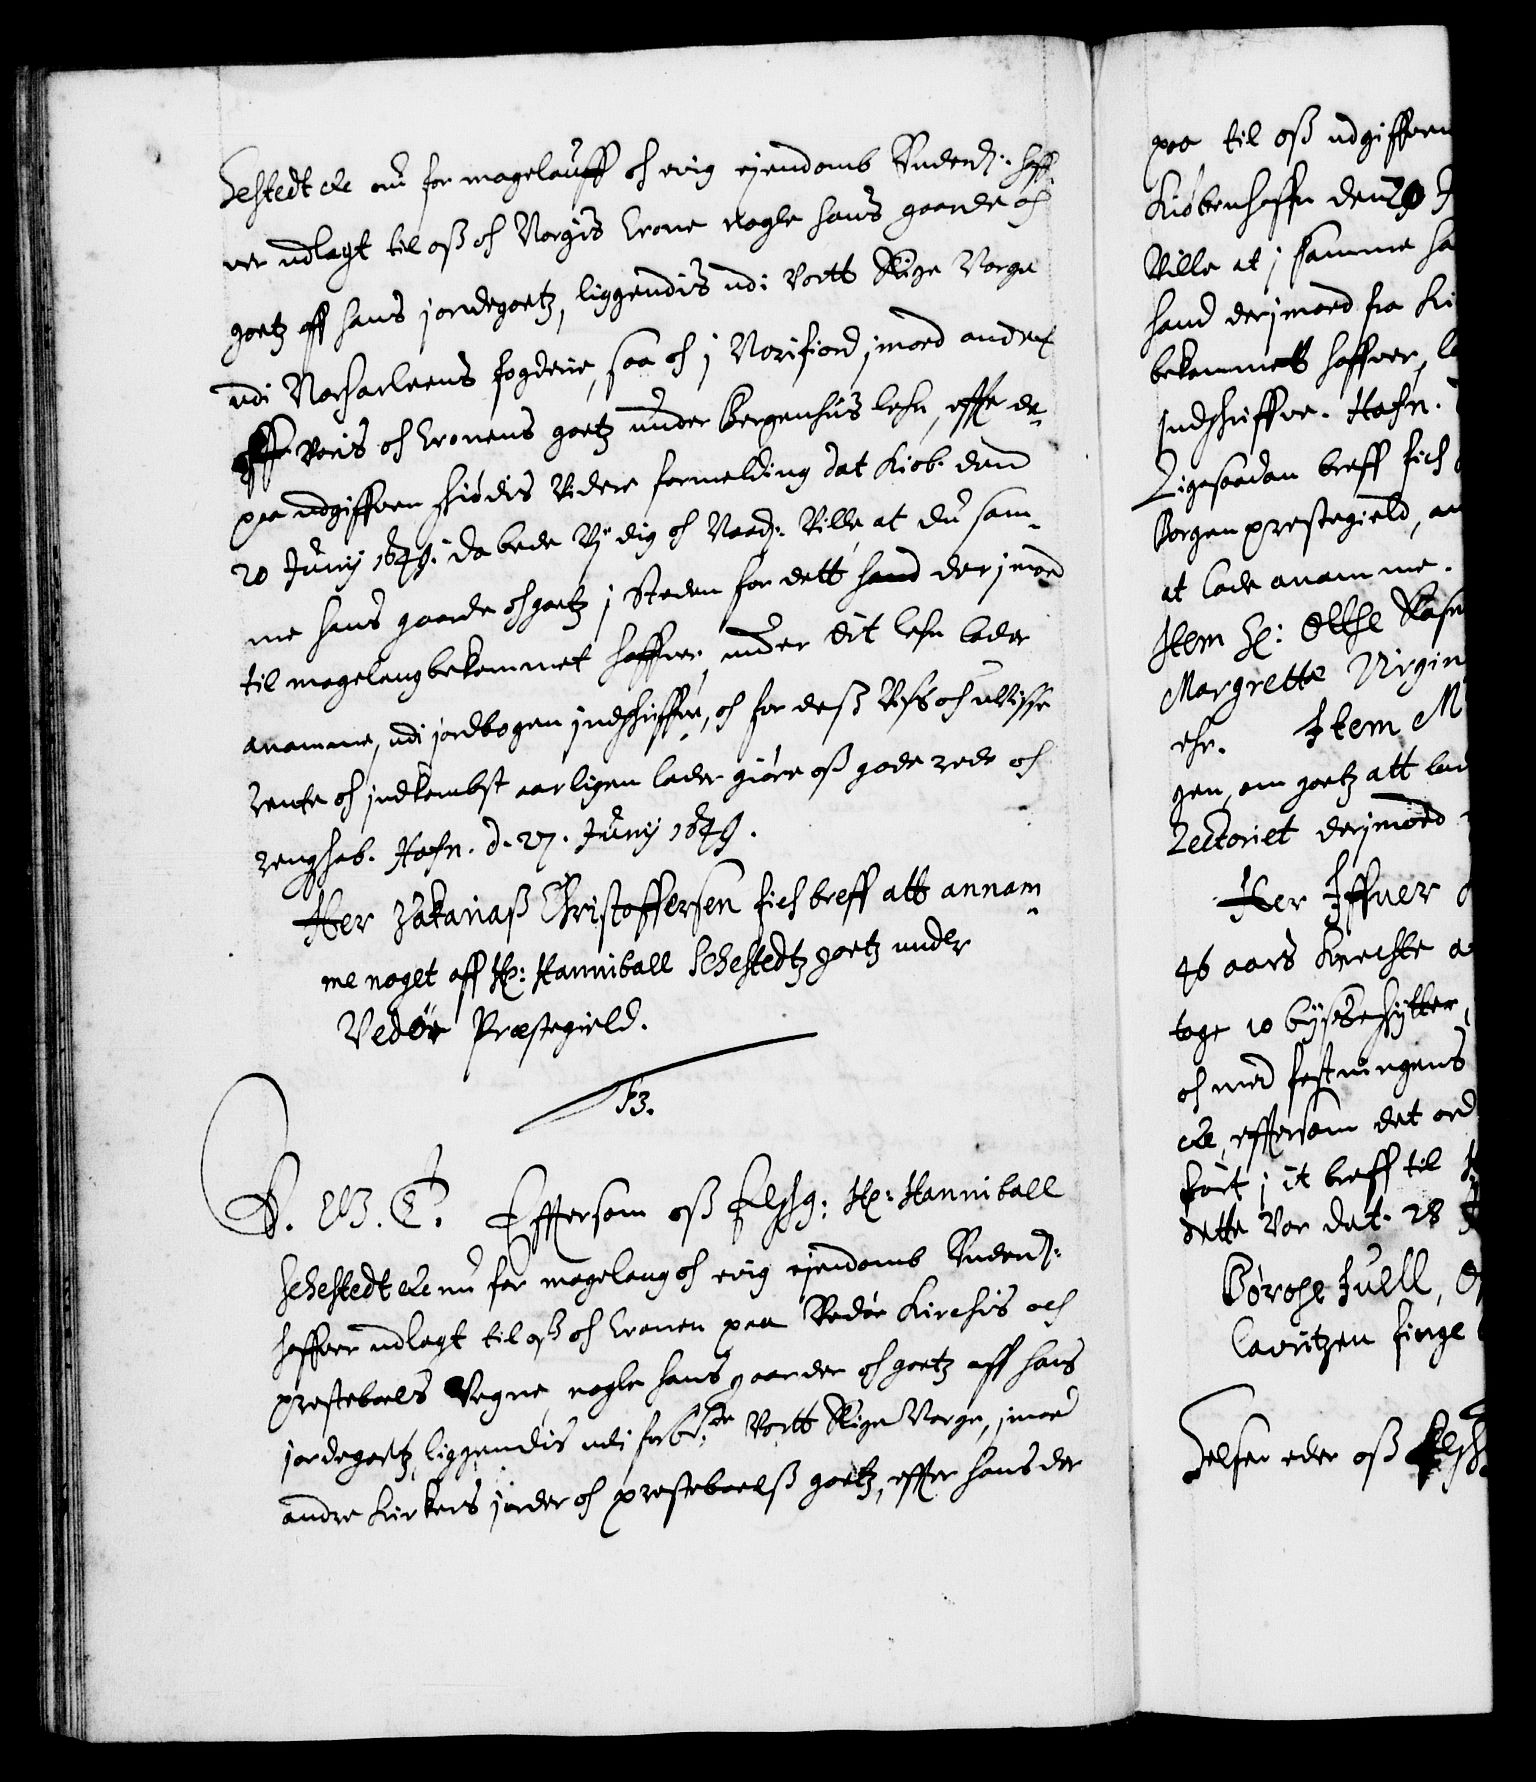 Sehestedt etc nu for magelauff och evig ejendomb Underd: haff-
ver udlagt til oß och Norgis Crone nogle hans gaarde och
goetz aff hans jordegoetz, liggendis udi Vortt Rige Norge
udi fogderie, saa och j Norifiord jmod andet
Voris och Cronens goetz under Bergenhus lehn, effter de-
paa udgiffven skiødis Videre formelding dat Kiøb. den
20 Junij 1649. Da bede Vij dig och Naad: Ville, at du sam-
me hans gaarde och goetz j steden for dett hand derjmod
til magelaug bekommet haffver, under dit lehn lader
anamme, udi jordbogen jndskriffve, och for deß Viss och uVisse
rente och jndkombst aarligen lader giøre oß gode rede och
rengskab. Hafn. d. 27. Junij 1649.
Her Zakariaß Christoffersen fich breff att annam-
me noget aff Hr: Hanniball Sehestedtz goetz under
Vedør Præstegield.
F3.
C. W. G. Effersom oß Elskel: Hr: Hanniball
Sehestedt etc nu for magelaug och evig ejendomb Underd:
haffver udlagt til oß och Cronen paa Vedør Kirchis och
prestebools Vegne nogle hans gaarder och goetz aff hans
jordegoetz, liggendis udi forbe:de Vortt Rige Norge, jmod
andre Kirkens jorder och presteboelß goetz, effter hans der
paa til oß udgiffven
Kiøbenhaffn den 20 J
Ville at j samme ha
hand derjmod fra Ki
bekommett haffver, l
jndskriffve. Hafn.
Ligesaadan breff fich
Borgen prestegield, an
at lade anamme.
Item Hr: Olthe Rasm
Margrette Virgin
ehr. Item M
gen, om goetz att lad
Lectoriet derjmod
Her Iffver
46 aars Knechte a
tage 10 bysseskytter,
och med festningens
etc, effersom det ord
kort j it breff til
dette Vor dat. 28 J
Børge Juell, O
Lauritzen finge
Helsen eder oß Elsk.